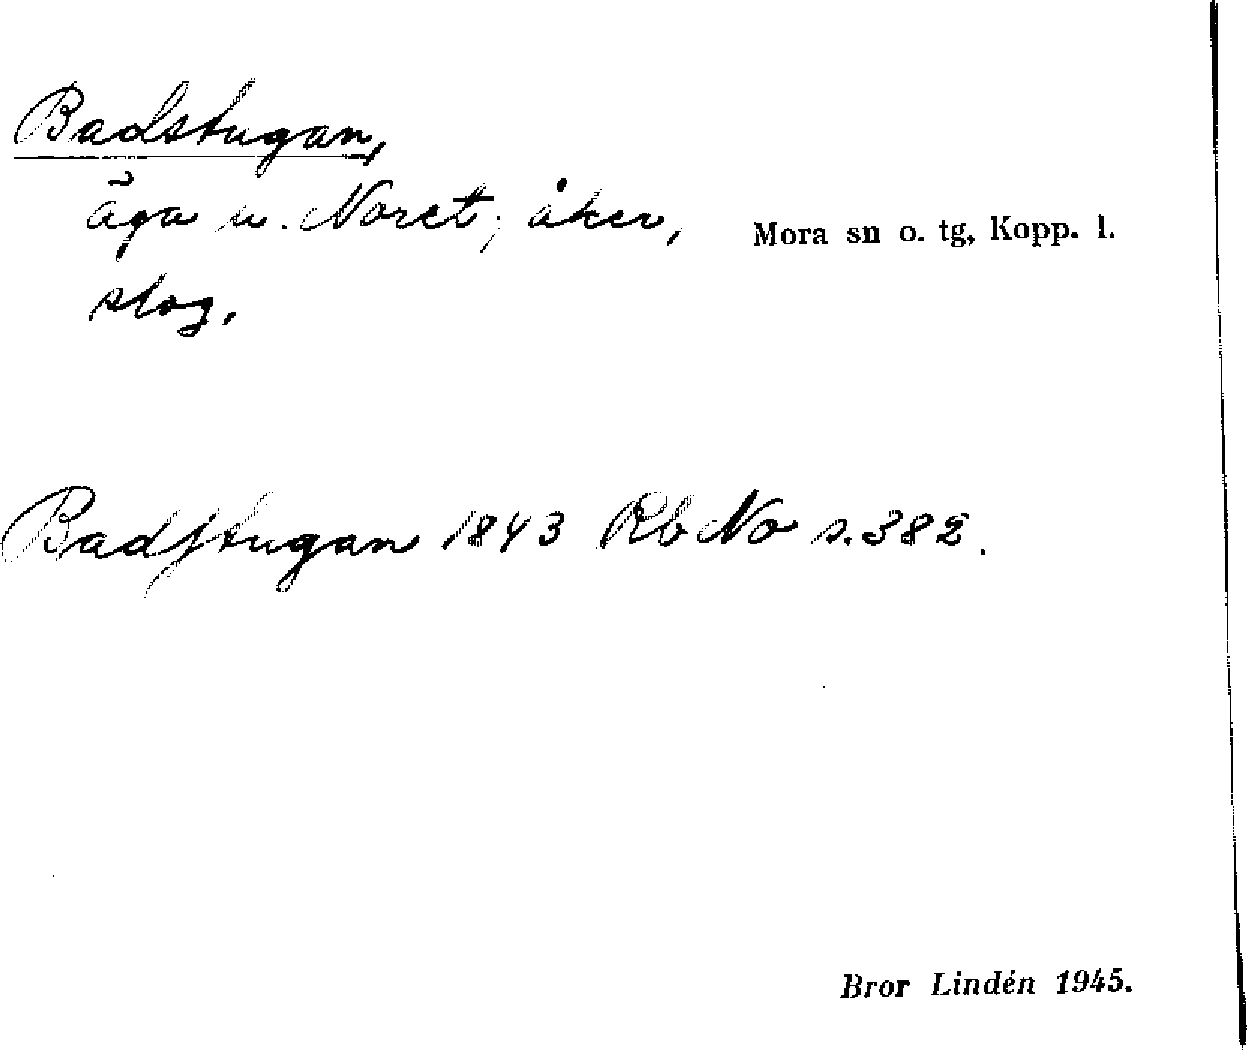 Badstugan,
äga u. Noret; åker,
Mora sn o. tg, Kopp. l.
slog.
Badstugan 1843 Rb No s. 382.
Bror Lindén 1945.